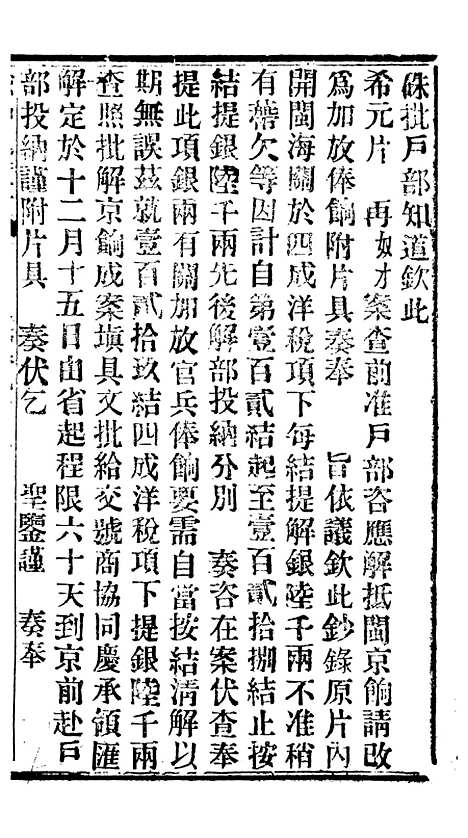 硃批戶部知道欽此
希元片　再奴才案查前准戶部咨應解抵閩京餉請改
爲加放俸餉附片具奏奉　旨依議欽此鈔錄原片內
開閩海關於四成洋稅項下每結提解銀陸千兩不准稍
有蔕欠等因計自第壹百貳結起至壹百貳拾捌結止按
結提銀陸千兩先後解部投納分別　奏咨在案伏查奉
提此項銀兩有關加放官兵俸餉要需自當按結清解以
期無誤茲就壹百貳拾玖結四成洋稅項下提銀陸千兩
查照批解京餉成案塡具文批給交號商協同慶承領匯
解定於十二月十五日由省起程限六十天到京前赴戶
部投納謹附片具　奏伏乞　聖鑒謹　奏奉